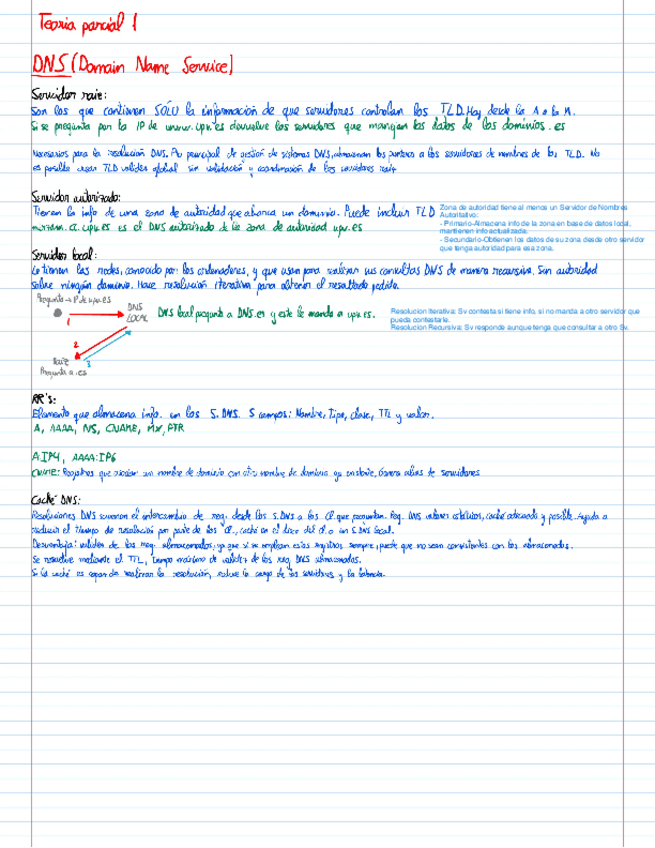 Teoria parcial 1
DNS (Domain Name Service)
Servidor raiz:
Son los que contienen SOLO la información de que servidores controlan los TLD. Hay desde la A a la M.
Si se pregunta por la IP de www.upv.es devuelve los servidores que manejan los datos de los dominios .es
Necesarios para la resolución DNS. principal de gestión de sistemas DNS, almacenan los punteros a los servidores de nombres de los TLD. No
es posible usar TLD validez global sin validación y coordinación de los servidores raíz
Servidor autorizado:
Tienen la info de una zona de autoridad que abarca un dominio. Puede incluir TLD
es el DNS autorizado de la zona de autoridad upv.es
Zona de autoridad tiene al menos un Servidor de Nombres
Autoritativo:
- Primario-Almacena info de la zona en base de datos local,
mantienen info actualizada.
- Secundario-Obtienen los datos de su zona desde otro servidor
que tenga autoridad para esa zona.
Servidor local:
Lo tienen las redes, conocido por los ordenadores, y que usan para realizar sus consultas DNS de manera recursiva. Sin autoridad
sobre ningún dominio. Hace resolución iterativa para obtener el resultado pedido.
Pregunta → IP de upv.es
1
DNS
LOCAL
DNS local pregunta a DNS.es y este le manda a upv.es.
Resolucion Iterativa: Sv contesta si tiene info, si no manda a otro servidor que
pueda contestarle.
Resolucion Recursiva: Sv responde aunque tenga que consultar a otro Sv.
2
3
Raiz
Pregunta a .es
RR's:
Elemento que almacena info. en los S. DNS. 5 campos: Nombre, Tipo, clase, TTL y valor.
A, AAAA, NS, CNAME, MX, PTR
A: IP4, AAAA: IP6
CNAME: Registros que asocian un nombre de dominio con otro nombre de dominio ya existente, alias de servidores
Caché DNS:
Resoluciones DNS el intercambio de reg. desde los S.DNS a los Cl. que preguntan. Reg. DNS valores estáticos, caché adecuado y posible. Ayuda a
reducir el tiempo de resolución por parte de los Cl., caché en el disco del cl. o en S.DNS local.
Desventaja: validez de los reg. almacenados, ya que si se emplean estos registros siempre, puede que no sean consistentes con los almacenados.
Se resuelve mediante el TTL, tiempo máximo de validez de los reg. DNS almacenados.
Si la caché es capaz de realizar la resolución, reduce la carga de los servidores y la latencia.